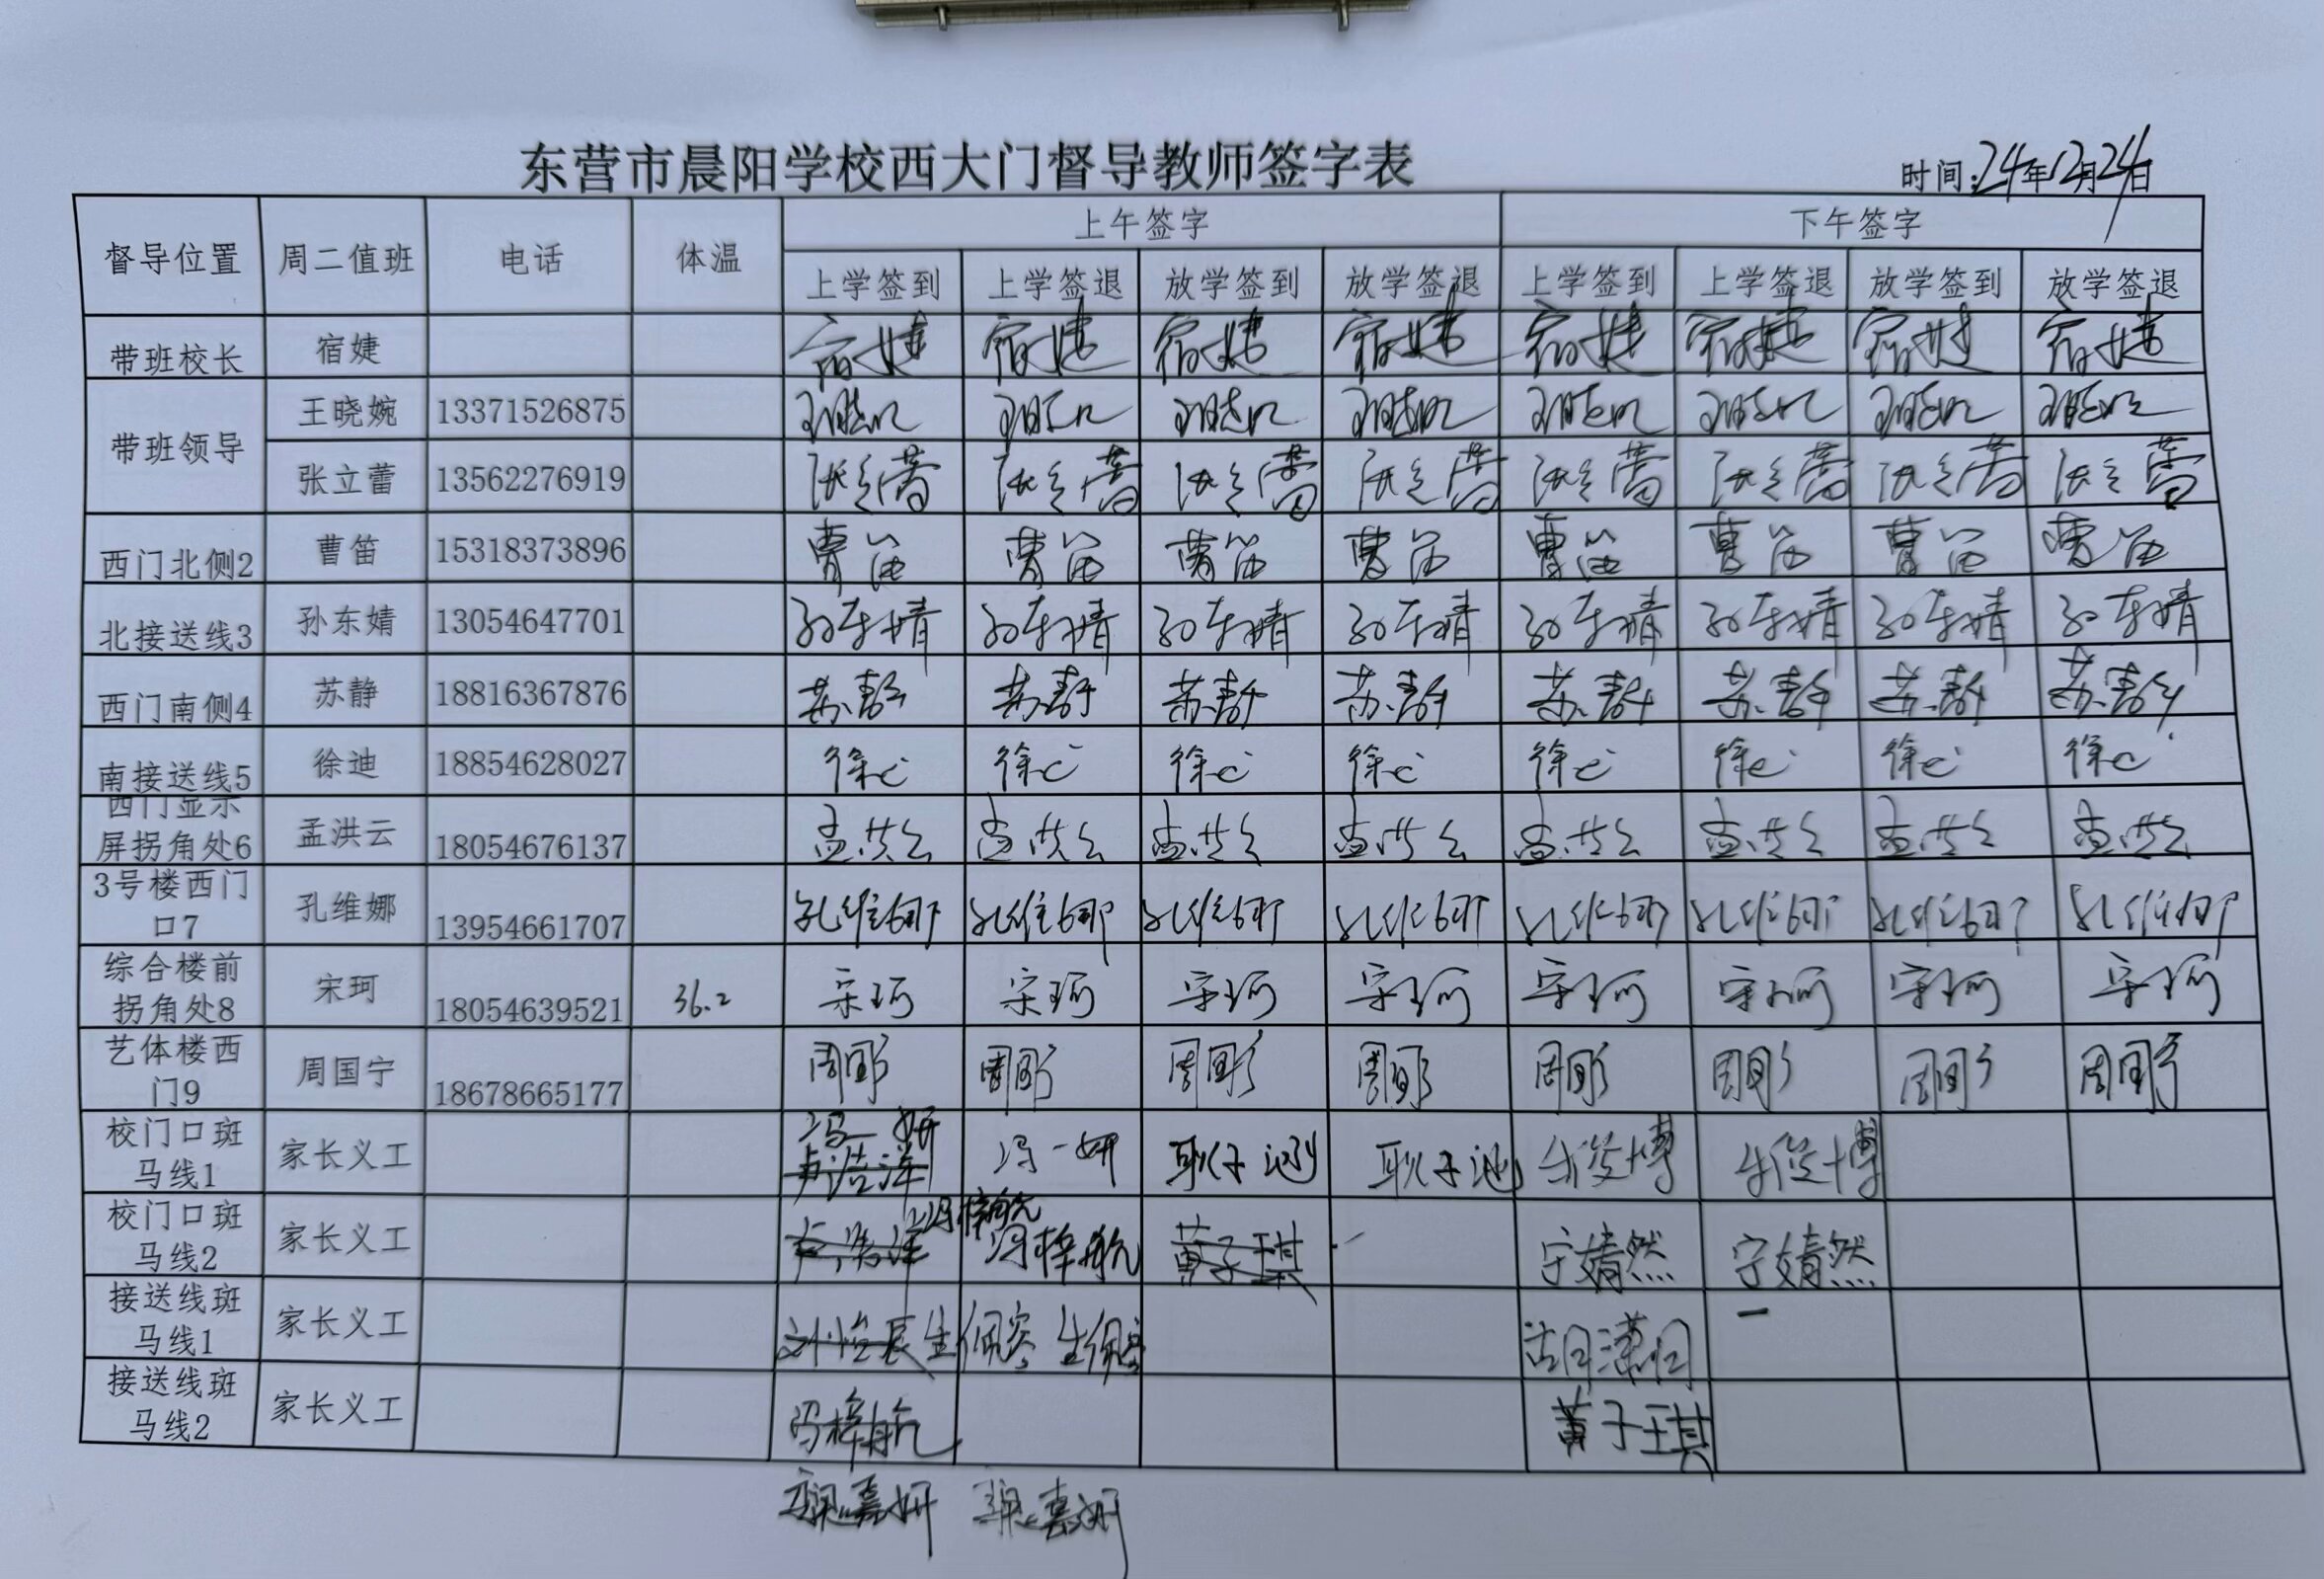 东营市晨阳学校西大门督导教师签字表
时间:24年12月24日
督导位置 周二值班 电话 体温 上午签字 下午签字
上学签到 上学签退 放学签到 放学签退 上学签到 上学签退 放学签到 放学签退
带班校长 宿婕 宿婕 宿婕 宿婕 宿婕 宿婕 宿婕 宿婕 宿婕
带班领导
王晓婉 13371526875 王晓婉 王晓婉 王晓婉 王晓婉 王晓婉 王晓婉 王晓婉 王晓婉
张立蕾 13562276919 张立蕾 张立蕾 张立蕾 张立蕾 张立蕾 张立蕾 张立蕾 张立蕾
西门北侧2 曹笛 15318373896 曹笛 曹笛 曹笛 曹笛 曹笛 曹笛 曹笛 曹笛
北接送线3 孙东婧 13054647701 孙东婧 孙东婧 孙东婧 孙东婧 孙东婧 孙东婧 孙东婧 孙东婧
西门南侧4 苏静 18816367876 苏静 苏静 苏静 苏静 苏静 苏静 苏静 苏静
南接送线5 徐迪 18854628027 徐迪 徐迪 徐迪 徐迪 徐迪 徐迪 徐迪 徐迪
西门显示
屏拐角处6 孟洪云 18054676137 孟洪云 孟洪云 孟洪云 孟洪云 孟洪云 孟洪云 孟洪云 孟洪云
3号楼西门
口7 孔维娜 13954661707 孔维娜 孔维娜 孔维娜 孔维娜 孔维娜 孔维娜 孔维娜 孔维娜
综合楼前
拐角处8 宋珂 18054639521 36.2 宋珂 宋珂 宋珂 宋珂 宋珂 宋珂 宋珂 宋珂
艺体楼西
门9 周国宁 18678665177 周国宁 周国宁 周国宁 周国宁 周国宁 周国宁 周国宁 周国宁
校门口班
马线1 家长义工 冯一妍 冯一妍 耿子涵 耿子涵
校门口班
马线2 家长义工 冯梓航 冯梓航 黄子琪 宁婧然 宁婧然
接送线班
马线1 家长义工
接送线班
马线2 家长义工 冯梓航 黄子琪
嘉妍 嘉妍